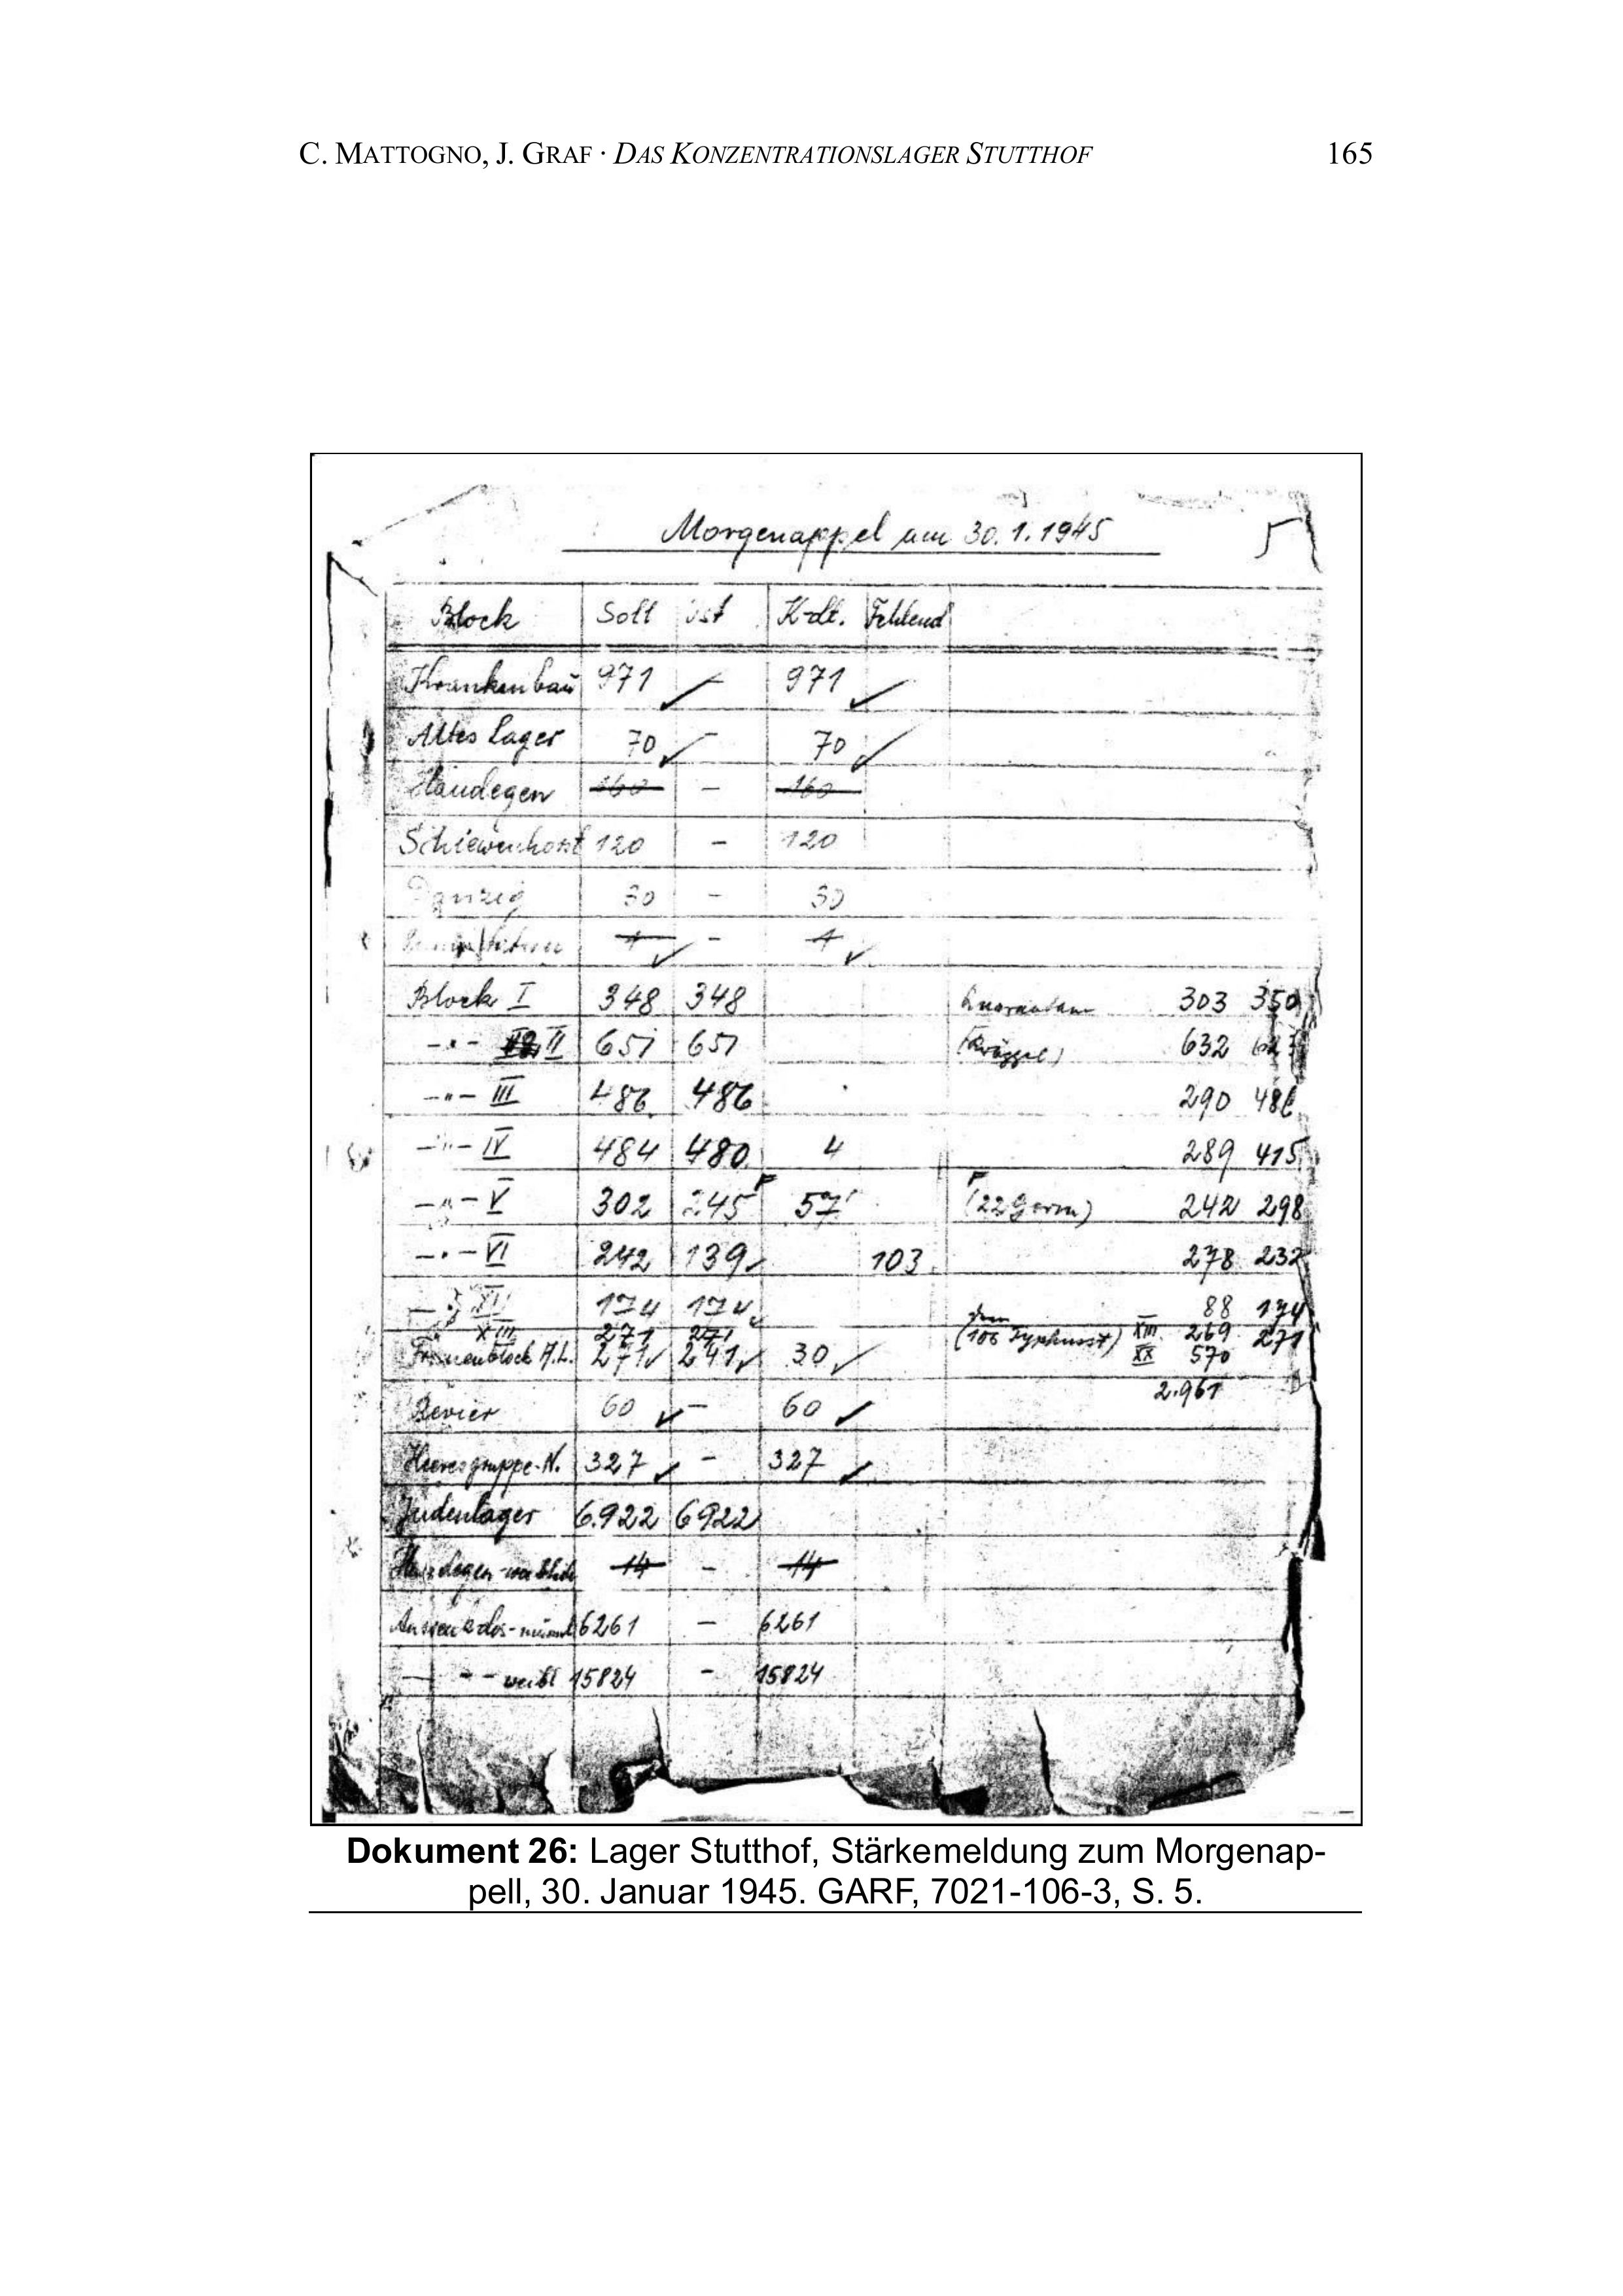 C. MATTOGNO, J. GRAF · DAS KONZENTRATIONSLAGER STUTTHOF 165
Morgenappel am 30.1.1945 5
Block Soll ist K-dt. Fehlend
Krankenbau 971 971
Altes Lager 70 - 70
Haudegen 160 - 160
Schiewenhorst 120 - 120
Danzig 30 - 30
1 - 1
Block I 348 348 303 350
-"- II 651 651 632
-"- III 486 486 290 486
-"- IV 484 480 4 289 415
-"- V 302 245 57 (22 Germ) 242 298
-"- VI 242 139 103 278 232
XII 174 174 88 174
XIII 271 271 (106 ) XIII 269 271
Frauenblock A.L. 271 241 30 XX 570
2.961
Revier 60 - 60
Heeresgruppe-N. 327 - 327
Judenlager 6.922 6922
14 - 14
6261 - 6261
-"- weibl 15824 - 15824
Dokument 26: Lager Stutthof, Stärkemeldung zum Morgenap-
pell, 30. Januar 1945. GARF, 7021-106-3, S. 5.